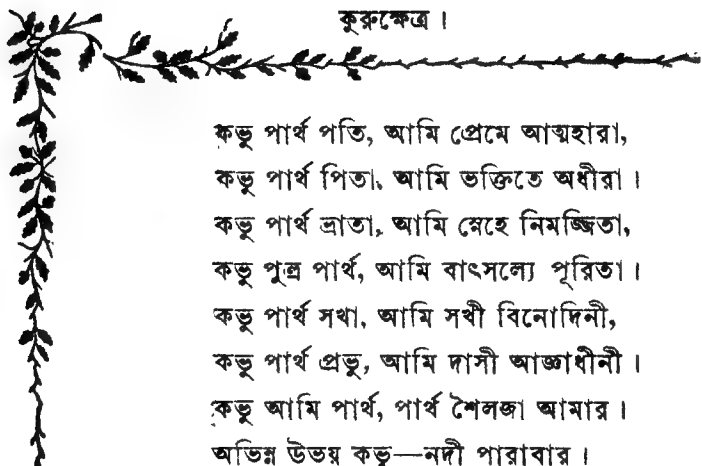 কুরুক্ষেত্র ।
কভু পার্থ পতি, আমি প্রেমে আত্মহারা,
কভু পার্থ পিতা, আমি ভক্তিতে অধীরা ।
কভু পার্থ ভ্রাতা, আমি স্নেহে নিমজ্জিতা,
কভু পুত্র পার্থ, আমি বাৎসল্যে পূরিতা ।
কভু পার্থ সখা, আমি সখী বিনোদিনী,
কভু পার্থ প্রভু, আমি দাসী আজ্ঞাধীনী ।
কভু আমি পার্থ, পার্থ শৈলজা আমার ।
অভিন্ন উভয় কভু—নদী পারাবার ।